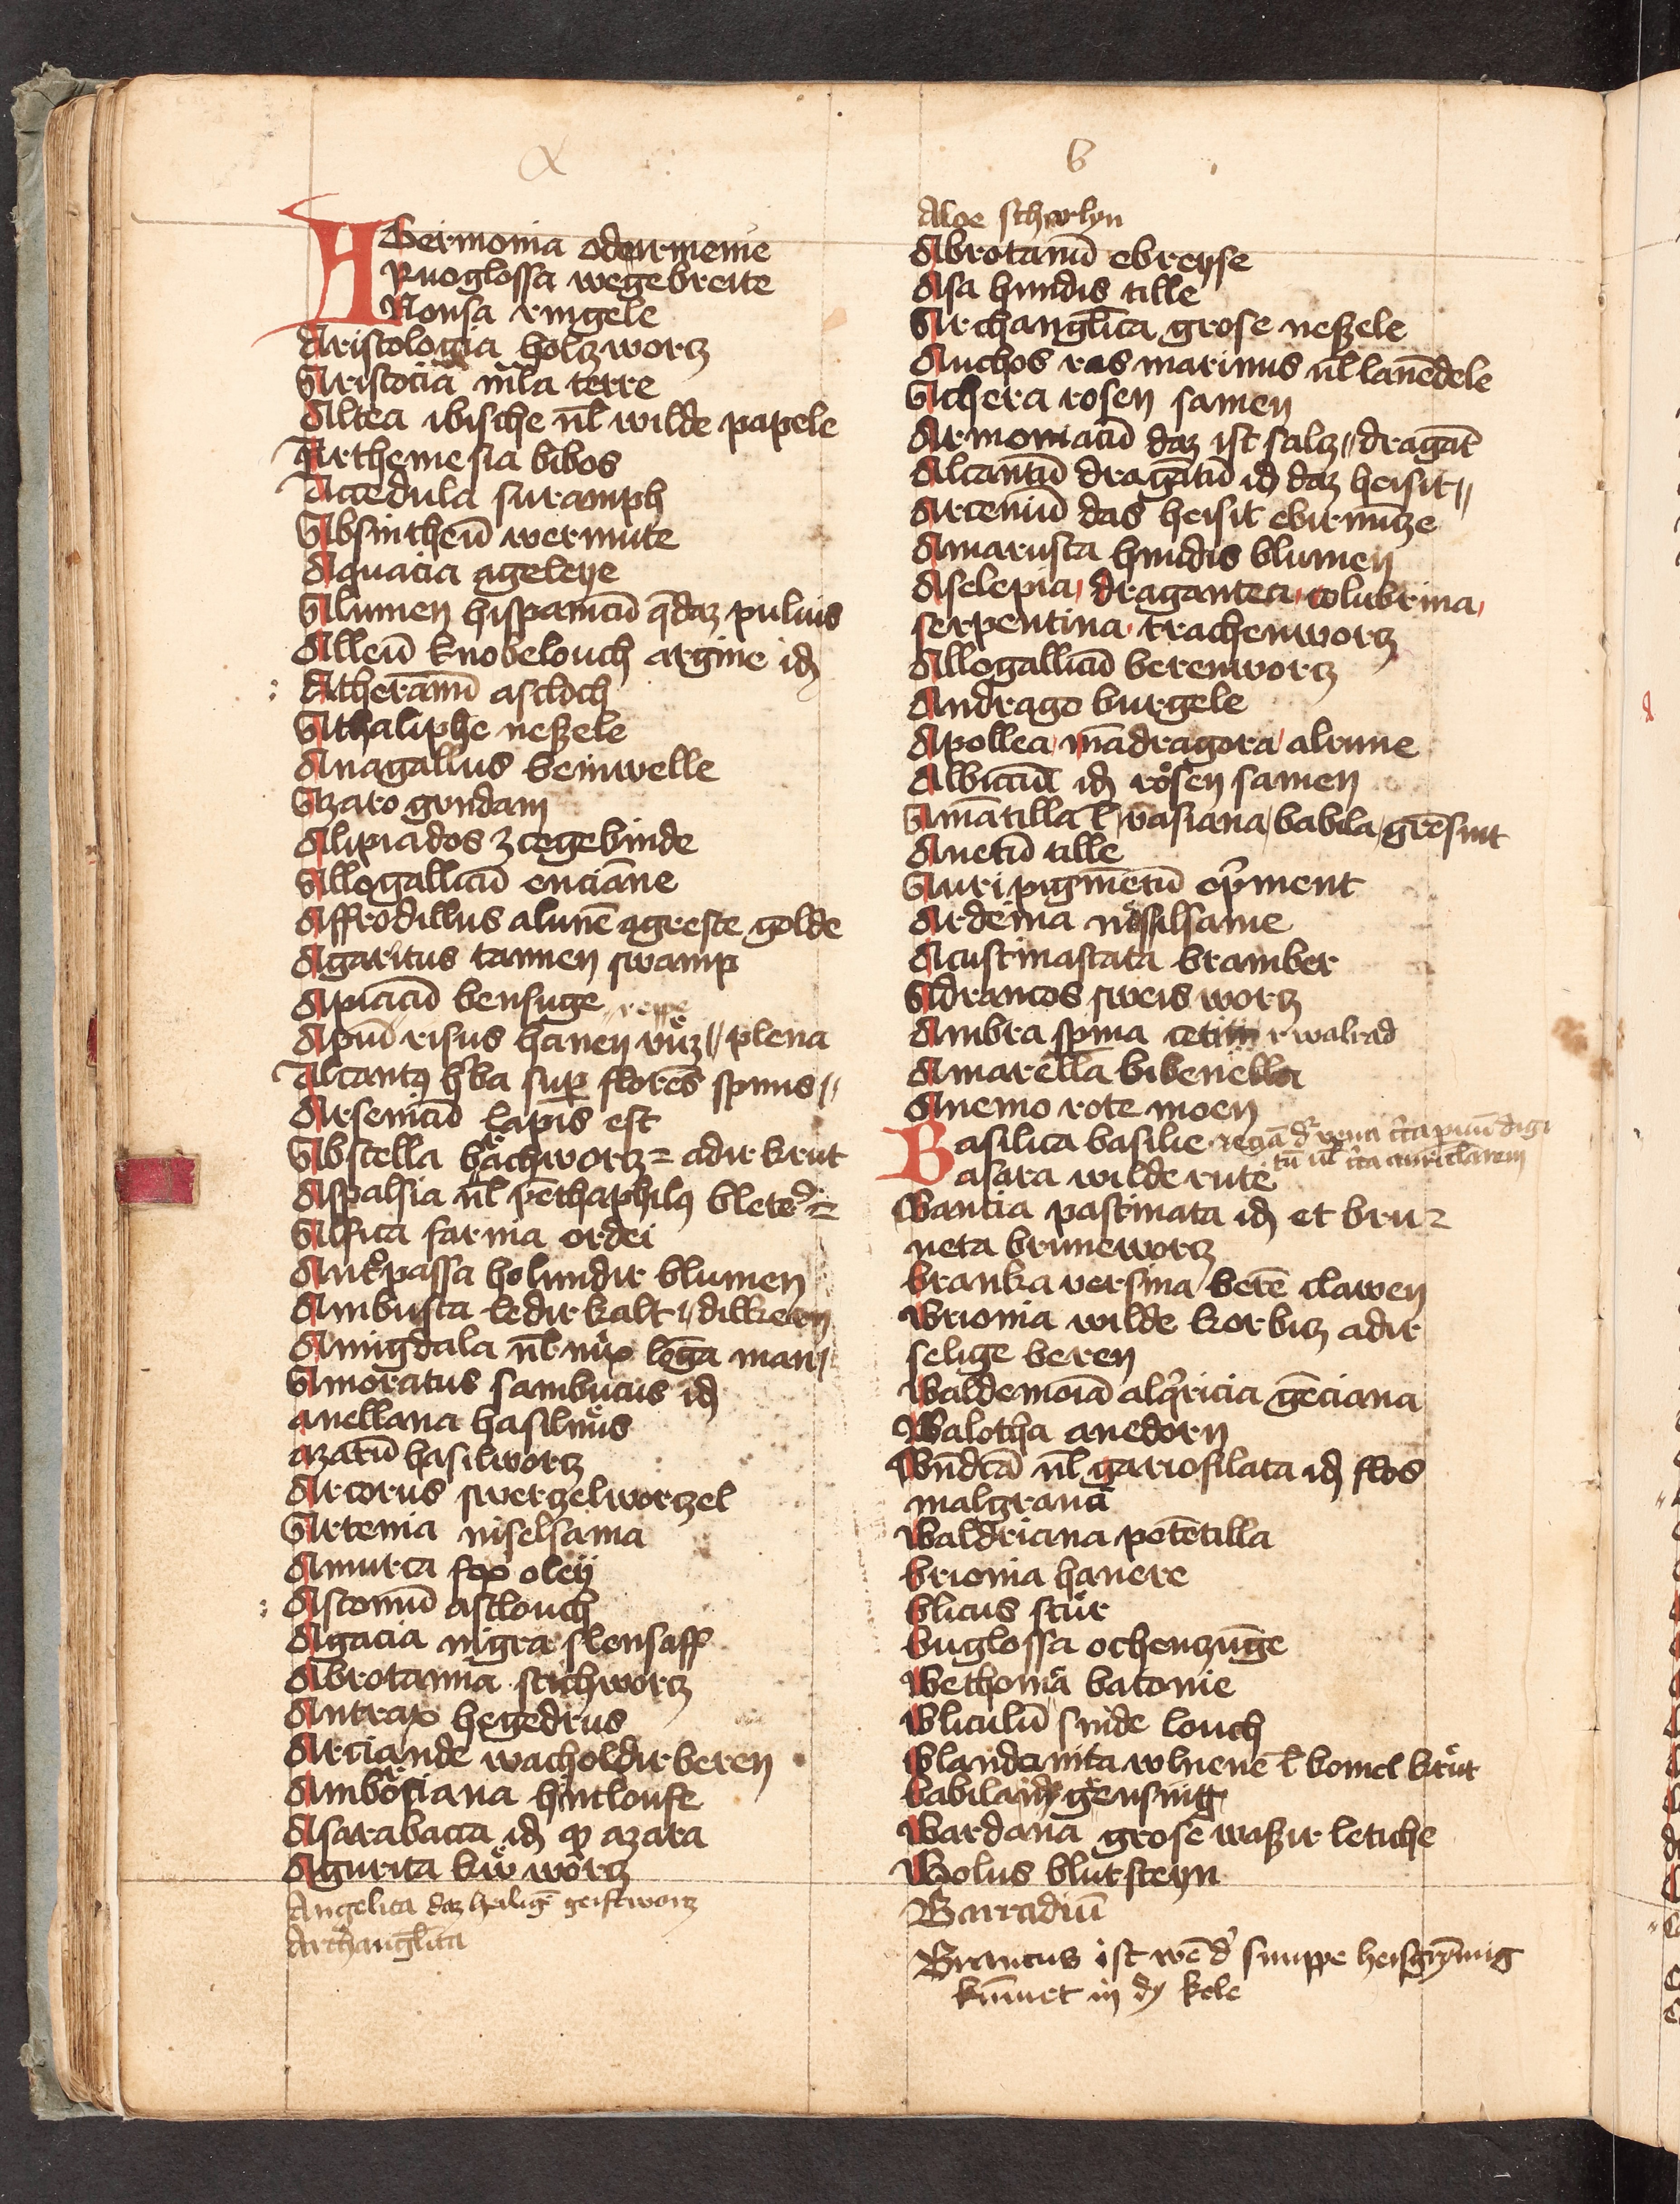 a
AGermonia odermenie
Rnoglossa wegebreite
Nonsa ringele
Aristologia holtzwortz
Aristocia mᷓla terre
Altea ibische vł wilde papele
Arthemesia bibos
Accedula suramph
Absintheū wermute
Aquacia ageleye
Alumen hispanicū q̄daz puluis
Alleū knobelouch argine id
Atheranū ascloch
Athaliphe neßele
Anagallus beinwelle
Azaro gundam
Alipiados zcegebinde
Allogallicū enciāne
Affrodillus alunē agreste golde
Agaritus tannen swamp
Apiacū bensuge
Apiū risus hanen vuͦz // plena
Alcantꝰ hᷓba suꝑ flores spinis //
Arsenicū lapis est
Abscella bachwortz = adir krut
Aspalsia vł pēthaphilꝰ bletē
Alfita farina ordei
Antͦpassa holundir blumen
Ambusta ledirkalk // dilkern
Amigdala vł nux lōga man
Amoratus sambucus id
auellana hasilnuͦs
azarū hasilwortz
Arcorus swerczelworczel
Artenia niselsama
Amurca fex oleÿ
Ascomū asclouch
Agacia nigra slensaff
Abrotannia stichwortz
Antrax hegedrus
Arciande wacholdirberen
Ambosiana hintloufe
Asarabacca id qͦ azara
Agurita kuͦ wortz
Angelica daz heiligē geistworz
Archangłica
b
Aloe
Abrotanū ebreyse
Asa hundis tille
Archangłica grose neßele
Anchos ros marinus vł lauēdele
Achera rosen samen
Armoniacū daz ist saltz // dragāt
Alcantū dragātū id daz heisit //
Arceniū das heisit ebirmūtze
Amarusca hundis blumen
Asclepia / dragantea / colubrina /
serpentina / trachenwortz
Allogallicū berenwortz
Andrago burgele
Apollea / mādragora / alrune
Albiccū id rosen samen
Amātilla ł wasiana / babila / grēsint
Anetū tille
Auripigmētū opͥment
Ardeina nissilsame
Acustinascata bramber
Adrancos sweis wortz
Ambra spma cetin r walrad
Amarella bibenella
Anemo rote moen
Basilica basilie
Basara wilde rute
Bancia pastinata id et bru=
neta brunewortz
branka versina berē clawen
Brionia wilde korbitz adir
selige beren
Baldemoīa alqͥricia gēciana
Balotha anedorn
Bn̄dcā vł gariofilata id flos
malgranā
Baldriana potētilla
brionia hauere
blicus stuͦr
buglossa ochenzūge
Bethonia batonie
Bliculū sinde louch
blandonita wluene ł bomel kruͦt
babila id gensing
Bardana grose waßir letiche
Bolus blutsteyn
Barradiū
Brancus ist wē dͥ snuppe heisgrȳmig
kūmet in dy kele